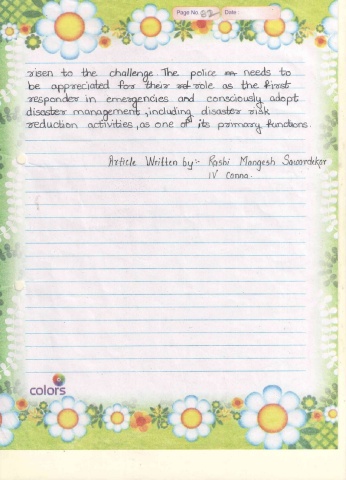 Page No. 02 Date
risen to the challenge. The police needs to
be appreciated for their role as the first
responder in emergencies and consciously adopt
disaster management, including disaster risk
reduction activities, as one of its primary functions.
Article Written by:- Rashi Mangesh Sawardekar
IV Canna.
colors